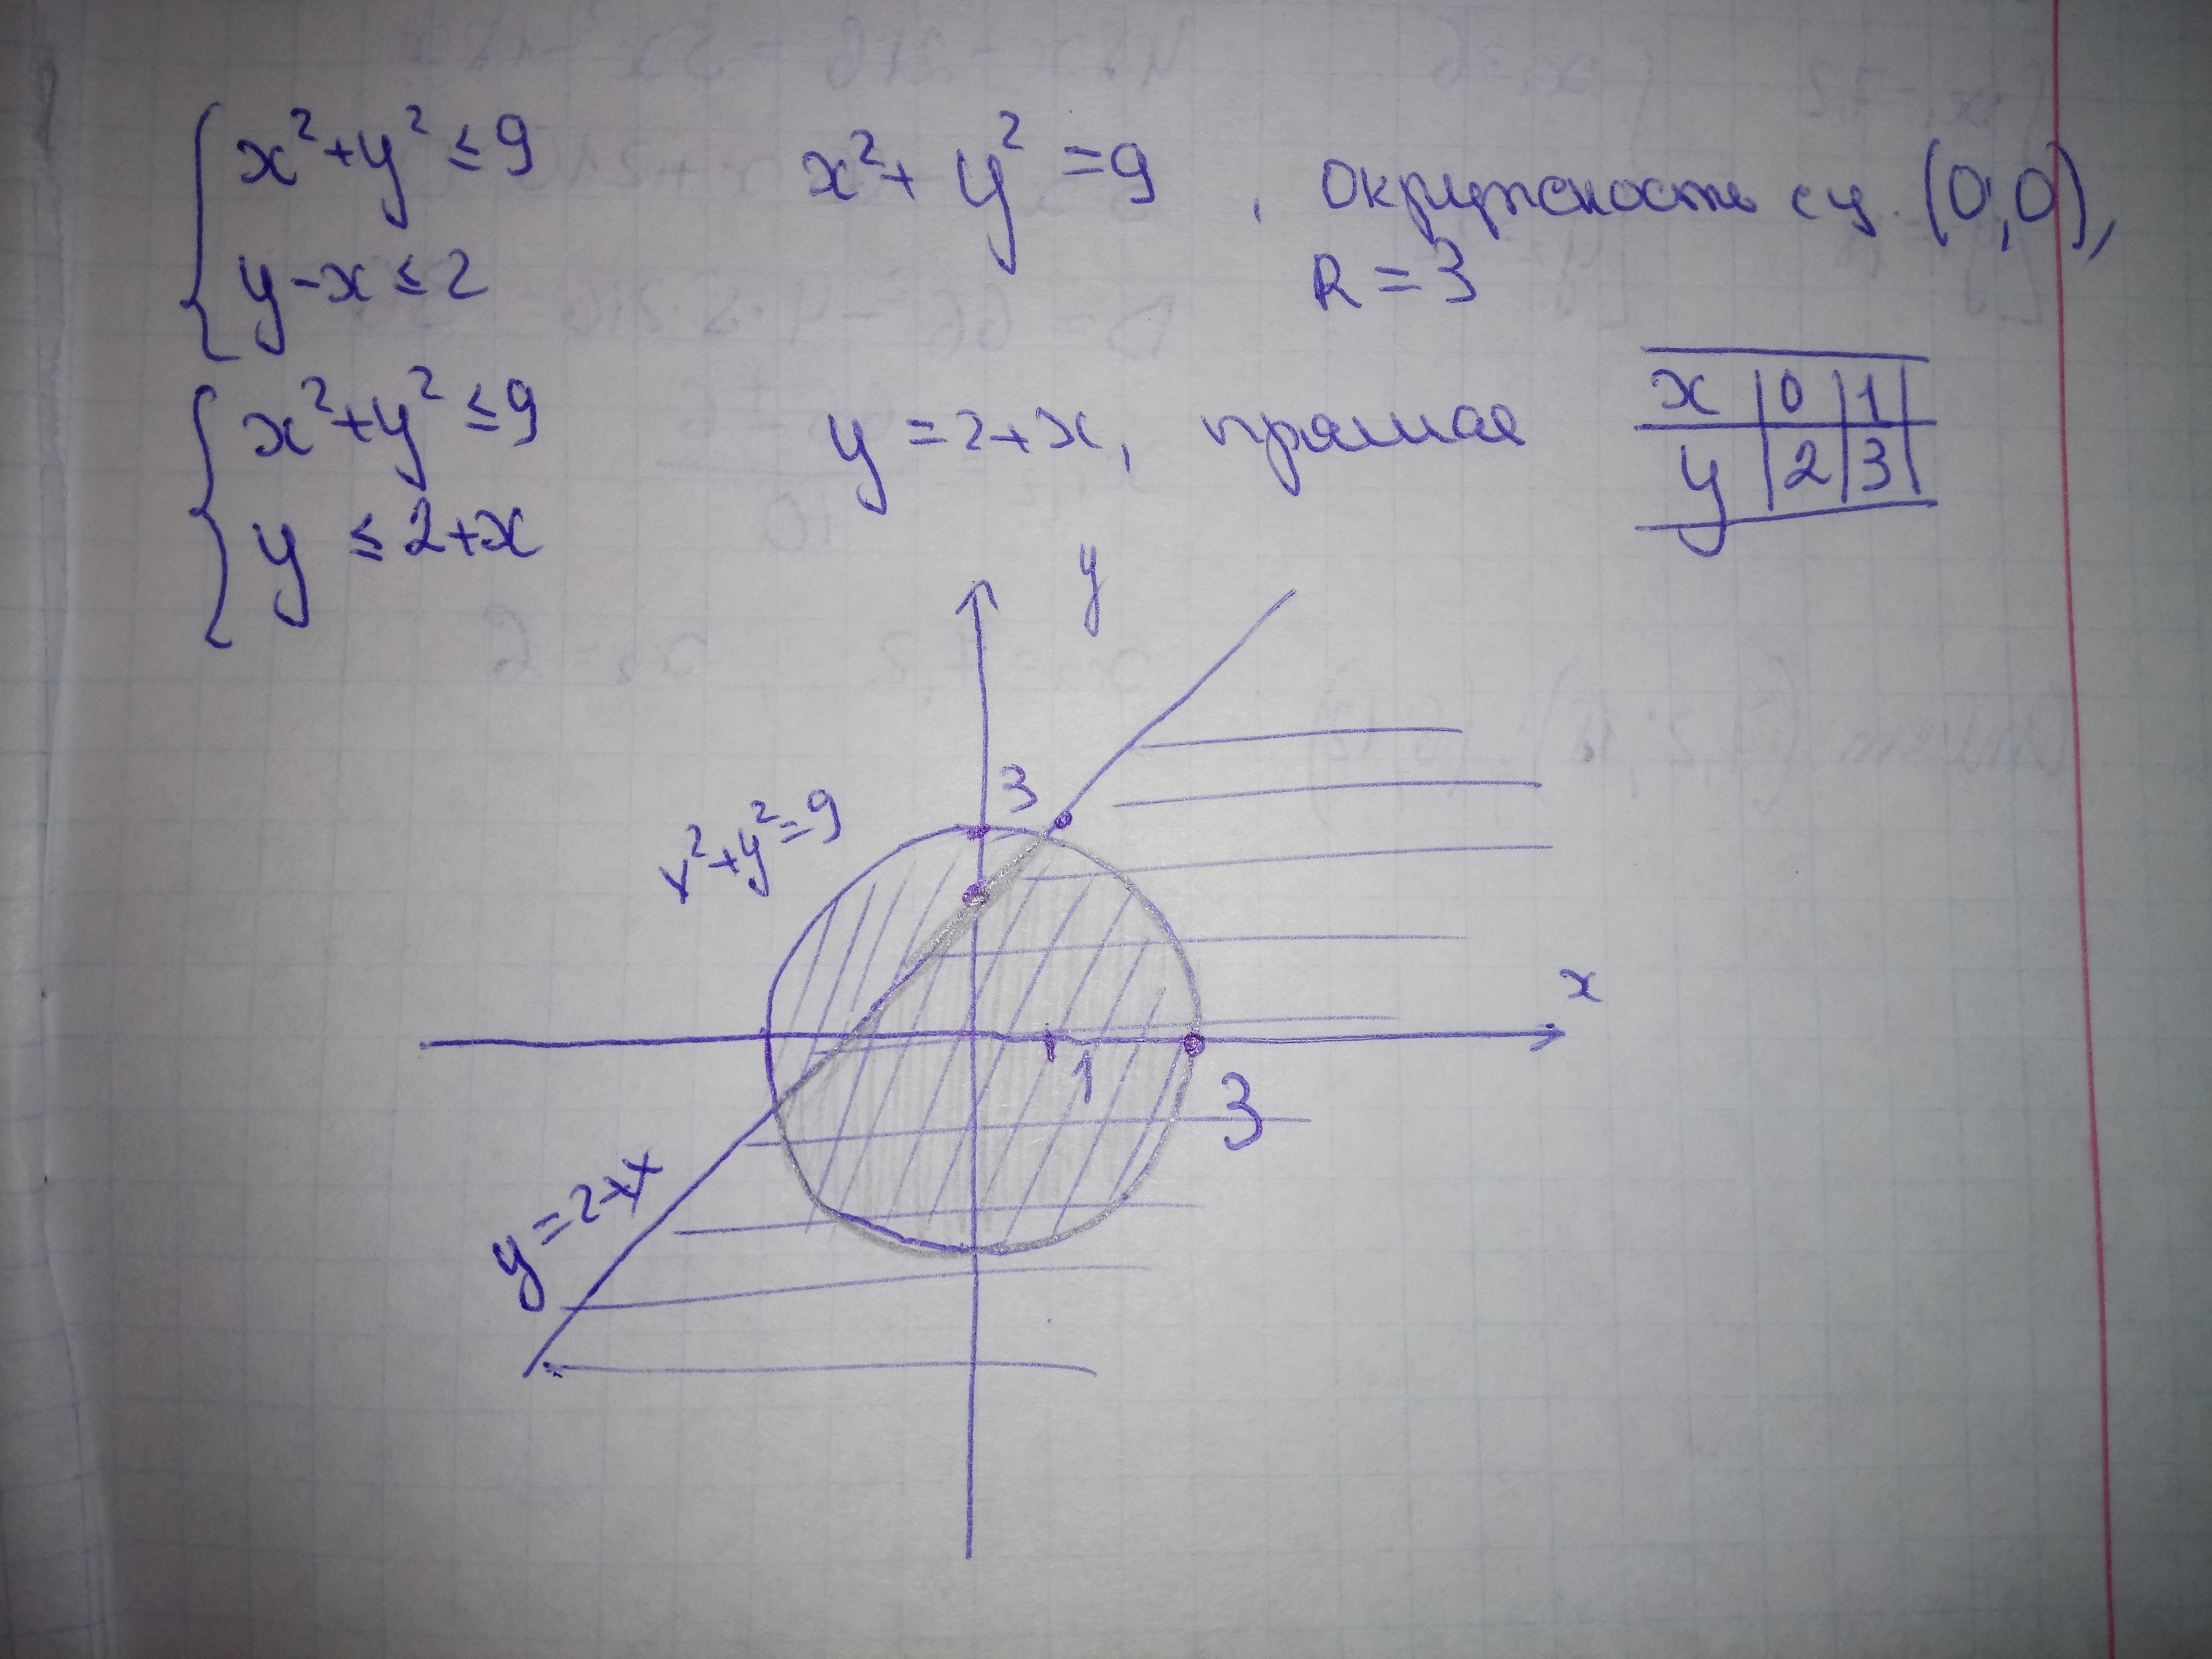 x²+y²≤9
y-x≤2
x²+y²=9, окружность с ц. (0;0),
R=3
x²+y²≤9
y≤2+x
y=2+x, прямая
x 0 1
y 2 3
y
3
x²+y²=9
x
1
3
y=2+x